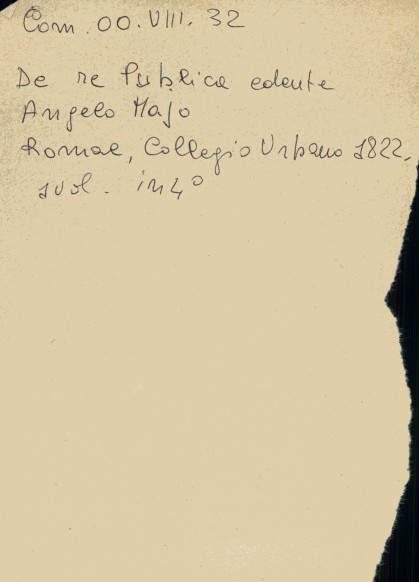 Com. OO. VIII. 32
De re Publica edente
Angelo Majo
Romae, Collegio Urbano 1822,
1 vol. in 4°